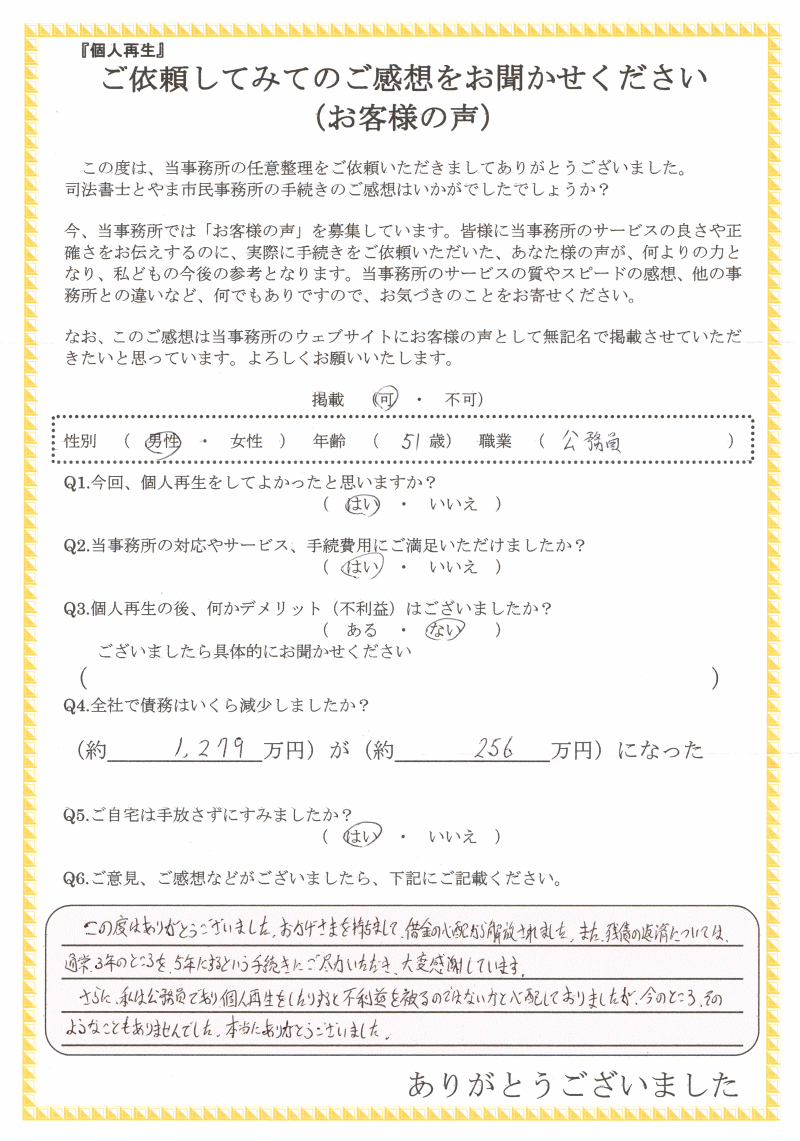 『個人再生』
ご依頼してみてのご感想をお聞かせください
（お客様の声）
この度は、当事務所の任意整理をご依頼いただきましてありがとうございました。
司法書士とやま市民事務所の手続きのご感想はいかがでしたでしょうか？
今、当事務所では「お客様の声」を募集しています。皆様に当事務所のサービスの良さや正
確さをお伝えするのに、実際に手続きをご依頼いただいた、あなた様の声が、何よりの力と
なり、私どもの今後の参考となります。当事務所のサービスの質やスピードの感想、他の事
務所との違いなど、何でもありですので、お気づきのことをお寄せください。
なお、このご感想は当事務所のウェブサイトにお客様の声として無記名で掲載させていただ
きたいと思っています。よろしくお願いいたします。
掲載 （可 ・ 不可）
性別 （ 男性 ・ 女性 ） 年齢 （ 51 歳） 職業 （ 公務員 ）
Q1.今回、個人再生をしてよかったと思いますか？
（ はい ・ いいえ ）
Q2.当事務所の対応やサービス、手続費用にご満足いただけましたか？
（ はい ・ いいえ ）
Q3.個人再生の後、何かデメリット（不利益）はございましたか？
（ ある ・ ない ）
ございましたら具体的にお聞かせください
（ ）
Q4.全社で債務はいくら減少しましたか？
（約 1,279 万円）が（約 256 万円）になった
Q5.ご自宅は手放さずにすみましたか？
（ はい ・ いいえ ）
Q6.ご意見、ご感想などがございましたら、下記にご記載ください。
この度はありがとうございました。おかげさまを持ちまして、借金の心配から解放されました。また、残債の返済については、
通常、3年のところを、5年にするという手続きにご尽力いただき、大変感謝しています。
さらに、私は公務員であり個人再生をしたりすると不利益を被るのではないかと心配しておりましたが、今のところ、その
ようなこともありませんでした。本当にありがとうございました。
ありがとうございました